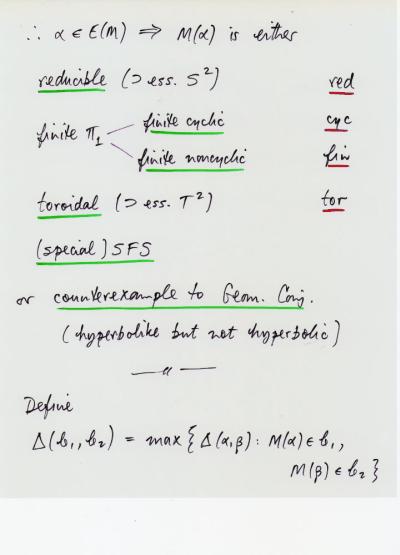 ∴ α ∈ E(M) ⟹ M(α) is either
reducible (⊃ ess. S²) red
finite π₁ finite cyclic cyc
finite noncyclic fin
toroidal (⊃ ess. T²) tor
(special) SFS
or counterexample to Geom. Conj.
(hyperbolike but not hyperbolic)
— " —
Define
Δ(𝒞₁, 𝒞₂) = max { Δ(α, β) : M(α) ∈ 𝒞₁,
M(β) ∈ 𝒞₂ }